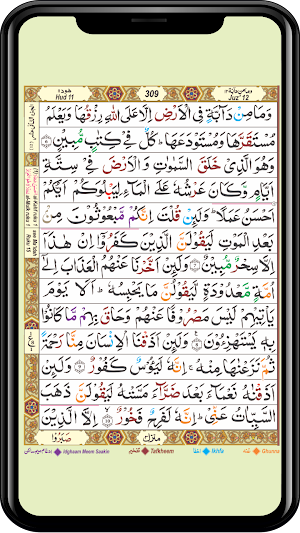 هود ١١
Hud 11
309
وما من دآبة ١٢
Juz' 12
وَمَا مِنْ دَآبَّةٍ فِى الْاَرْضِ اِلَّا عَلَى اللّٰهِ رِزْقُهَا وَيَعْلَمُ
مُسْتَقَرَّهَا وَمُسْتَوْدَعَهَا ؕ كُلٌّ فِىْ كِتٰبٍ مُّبِيْنٍ ﴿٦﴾
وَهُوَ الَّذِىْ خَلَقَ السَّمٰوٰتِ وَالْاَرْضَ فِىْ سِتَّةِ
اَيَّامٍ وَّكَانَ عَرْشُهٗ عَلَى الْمَآءِ لِيَبْلُوَكُمْ اَيُّكُمْ
اَحْسَنُ عَمَلًا ؕ وَلَئِنْ قُلْتَ اِنَّكُمْ مَّبْعُوْثُوْنَ مِنْۢ
بَعْدِ الْمَوْتِ لَيَقُوْلَنَّ الَّذِيْنَ كَفَرُوْۤا اِنْ هٰذَاۤ
اِلَّا سِحْرٌ مُّبِيْنٌ ﴿٧﴾ وَلَئِنْ اَخَّرْنَا عَنْهُمُ الْعَذَابَ اِلٰٓى
اُمَّةٍ مَّعْدُوْدَةٍ لَّيَقُوْلُنَّ مَا يَحْبِسُهٗ ؕ اَلَا يَوْمَ
يَاْتِيْهِمْ لَيْسَ مَصْرُوْفًا عَنْهُمْ وَحَاقَ بِهِمْ مَّا كَانُوْا
بِهٖ يَسْتَهْزِءُوْنَ ﴿٨﴾ وَلَئِنْ اَذَقْنَا الْاِنْسَانَ مِنَّا رَحْمَةً
ثُمَّ نَزَعْنٰهَا مِنْهُ ۚ اِنَّهٗ لَيَئُوْسٌ كَفُوْرٌ ﴿٩﴾ وَلَئِنْ
اَذَقْنٰهُ نَعْمَآءَ بَعْدَ ضَرَّآءَ مَسَّتْهُ لَيَقُوْلَنَّ ذَهَبَ
السَّيِّاٰتُ عَنِّىْ ؕ اِنَّهٗ لَفَرِحٌ فَخُوْرٌ ﴿١٠﴾ اِلَّا الَّذِيْنَ
صَبَرُوْا
منزل ٣
Idghaam Meem Saakin
Tafkheem
Ikhfa
Ghunna